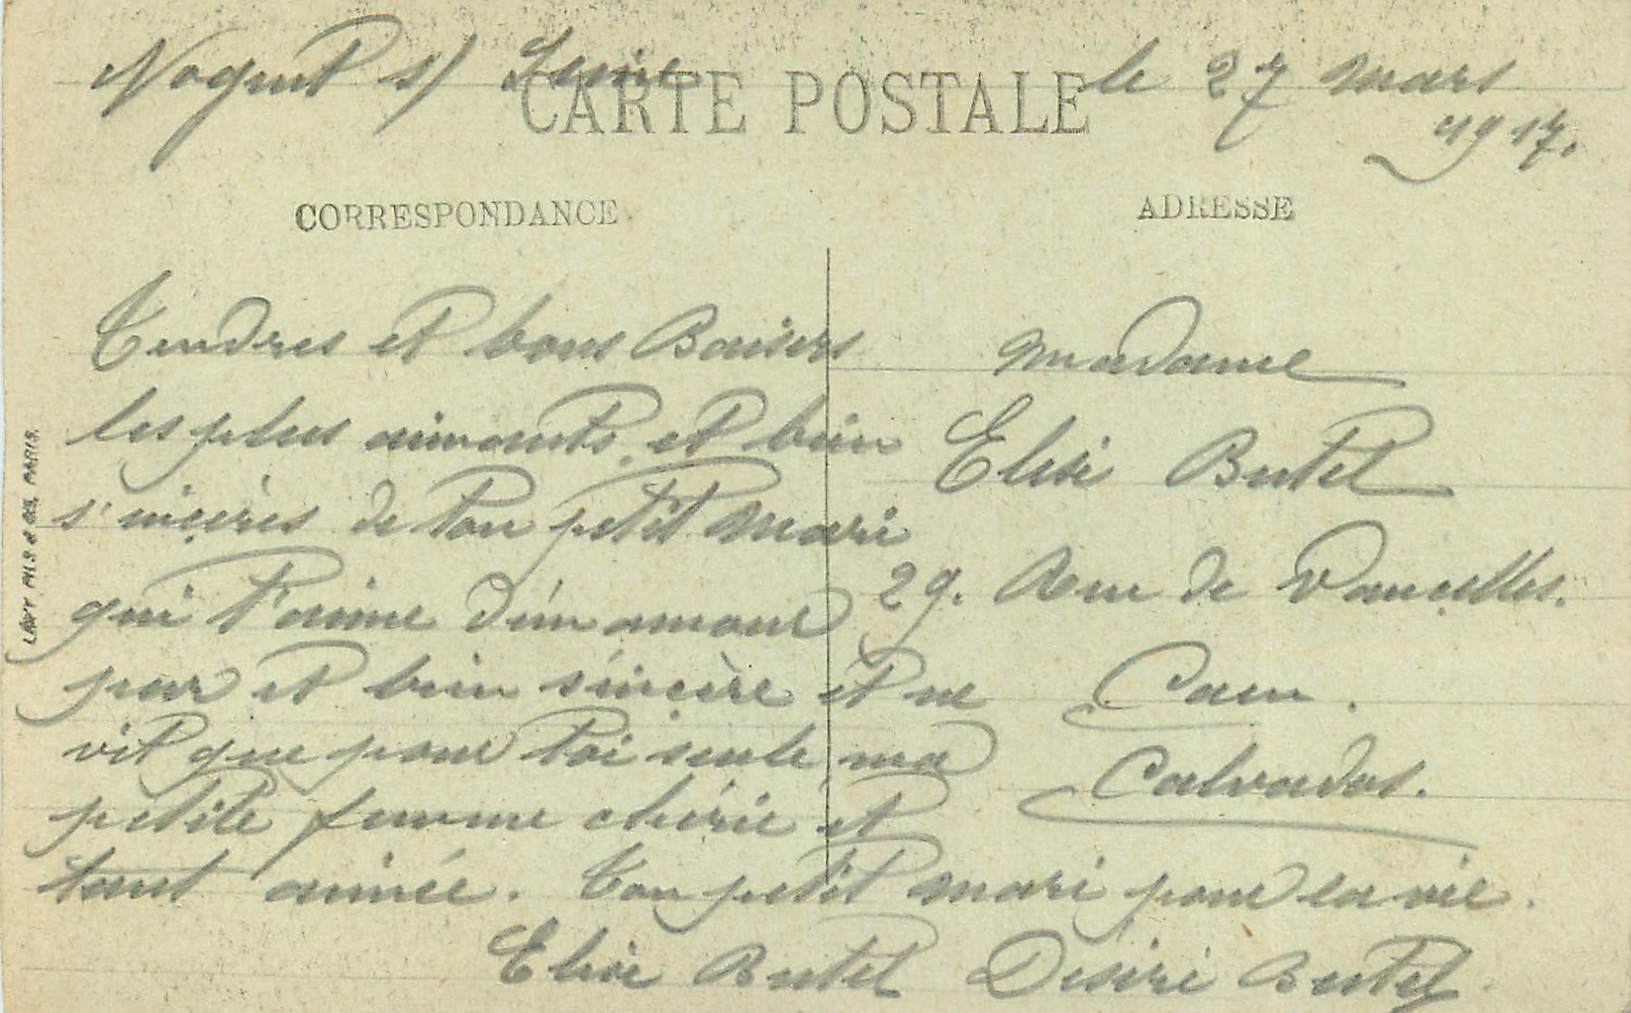 Nogent s/ Seine le 27 mars
1917.
CARTE POSTALE
CORRESPONDANCE
ADRESSE
Tendres et bons Baisers
les plus aimants et bien
sincères de ton petit Mari
qui t'aime d'un amour
pur et bien sincère et ne
vit que pour toi seule ma
petite femme chérie et
tant aimée. Ton petit mari pour la vie.
Elise Butel Désiré Butel
Madame
Elise Butel
29. Rue de Vaucelles.
Caen.
Calvados.
PARIS.